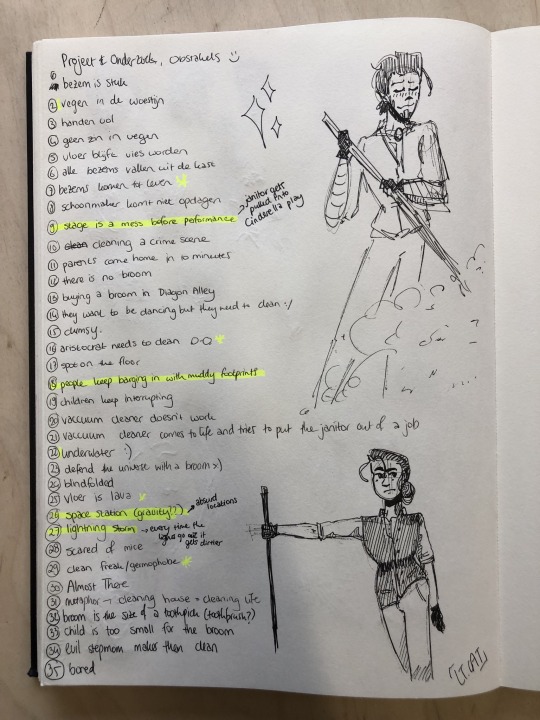 Project & Onderzoek, Obstakels :)
① bezem is stuk
② vegen in de woestijn
③ handen vol
④ geen zin in vegen
⑤ vloer blijft vies worden
⑥ alle bezems vallen uit de kast
⑦ bezems komen tot leven
⑧ schoonmaker komt niet opdagen
⑨ stage is a mess before peformance → janitor gets
pulled into
Cinderella play
⑩ clean cleaning a crime scene
⑪ parents come home in 10 minutes
⑫ there is no broom
⑬ buying a broom in Diagon Alley
⑭ they want to be dancing but they need to clean :/
⑮ clumsy.
⑯ aristocrat needs to clean
⑰ spot on the floor
⑱ people keep barging in with muddy footprints
⑲ children keep interrupting
⑳ vaccuum cleaner doesn't work
㉑ vaccuum cleaner comes to life and tries to put the janitor out of a job
㉒ underwater :)
㉓ defend the universe with a broom >)
㉔ blindfolded
㉕ vloer is lava
㉖ space station (gravity!?) → absurd
locations
㉗ lightning storm → every time the
lights go out it
gets dirtier
㉘ scared of mice
㉙ clean freak/germophobe
㉚ Almost There
㉛ metaphor → cleaning house = cleaning life
㉜ broom is the size of a toothpick (toothbrush?)
㉝ child is too small for the broom
㉞ evil stepmom makes them clean
㉟ bored